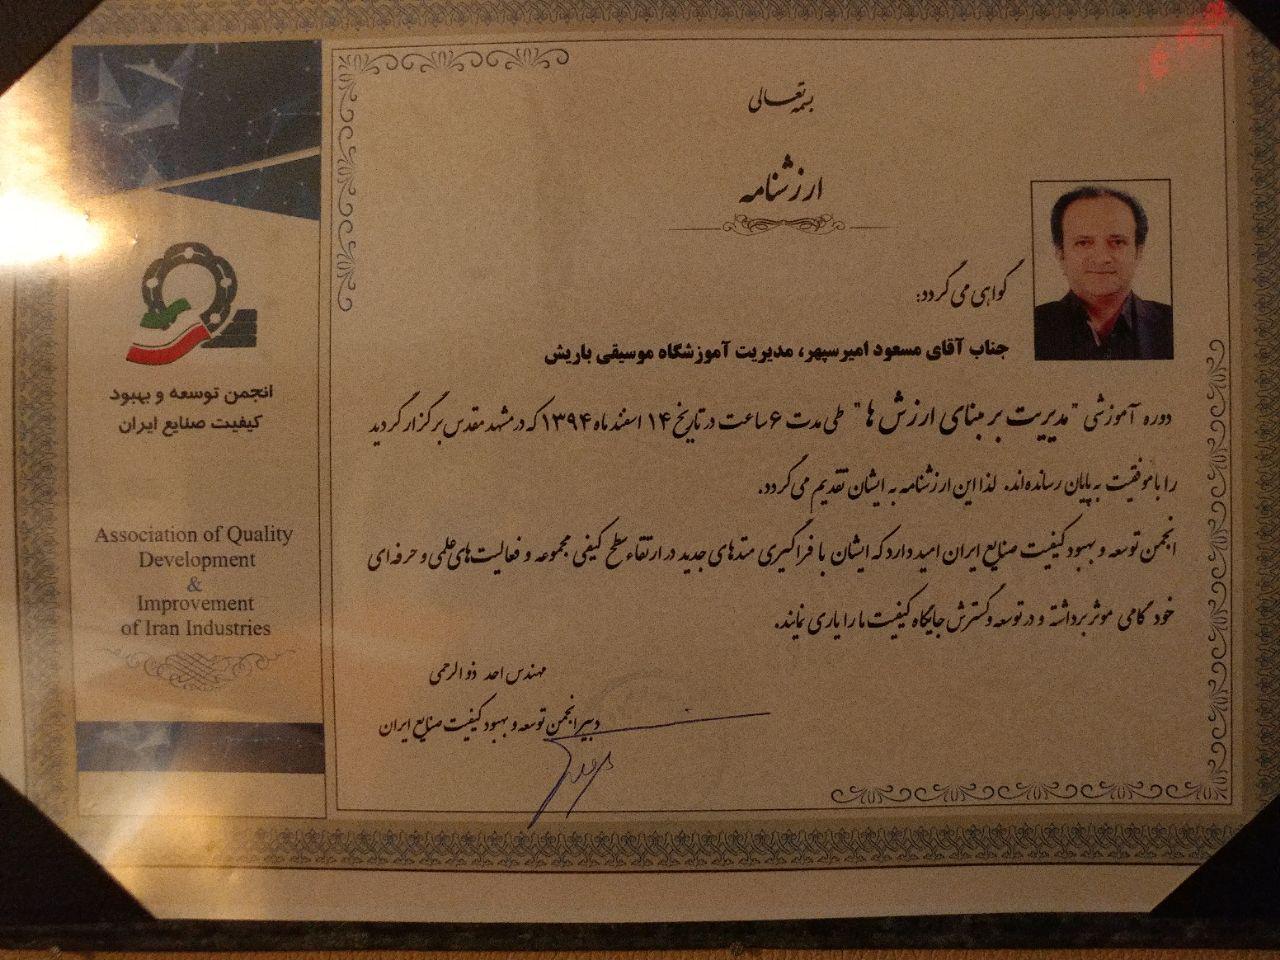 بسمه تعالی
ارزشنامه
گواهی می گردد:
جناب آقای مسعود امیرسپهر، مدیریت آموزشگاه موسیقی باریش
دوره آموزشی "مدیریت بر مبنای ارزش ها" طی مدت ۶ ساعت در تاریخ ۱۴ اسفند ماه ۱۳۹۴ که در مشهد مقدس برگزار گردید
را با موفقیت به پایان رسانده‌اند. لذا این ارزشنامه به ایشان تقدیم می گردد.
انجمن توسعه و بهبود کیفیت صنایع ایران امید دارد که ایشان با فراگیری متدهای جدید در ارتقاء سطح کیفی مجموعه و فعالیت‌های علمی و حرفه ای
خود گامی موثر برداشته و در توسعه و گسترش جایگاه کیفیت ما را یاری نمایند.
مهندس احد ذوالرحمی
دبیر انجمن توسعه و بهبود کیفیت صنایع ایران
انجمن توسعه و بهبود
کیفیت صنایع ایران
Association of Quality
Development
&
Improvement
of Iran Industries